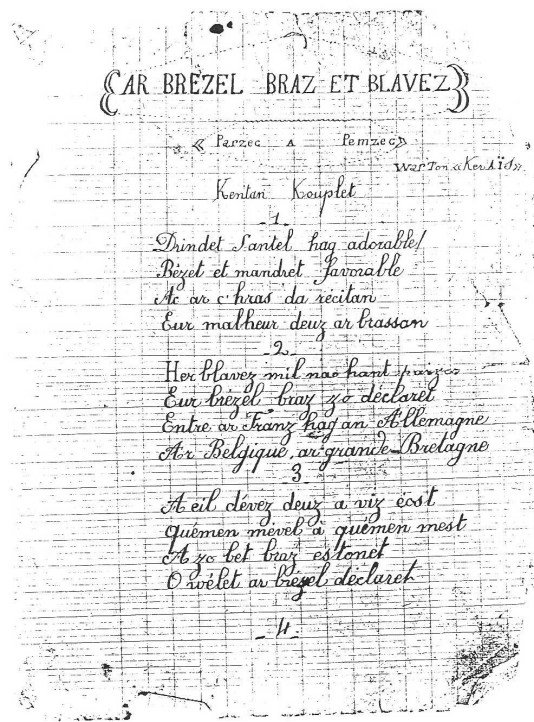 AR BRÉZEL BRAZ ET BLAVEZ
« Parzec A Pemzec »
War Ton « Ker Aïs »
Kentan Kouplet
_1_
Drindet Santel hag adorable!
Bézet et mandret favorable
Ac ar c'hras da récitan
Eur malheur deuz ar brassan
_2_
Her blavez mil nao hant parzec
Eur brézel braz zo déclaret
Entre ar Franz hag an Allemagne
Ar Belgique, ar grande-Bretagne
3
A eil dévez deuz a viz éost
quémen mével à quémen mest
A zo bet braz estonet
O wélet ar brézel déclaret
_4_